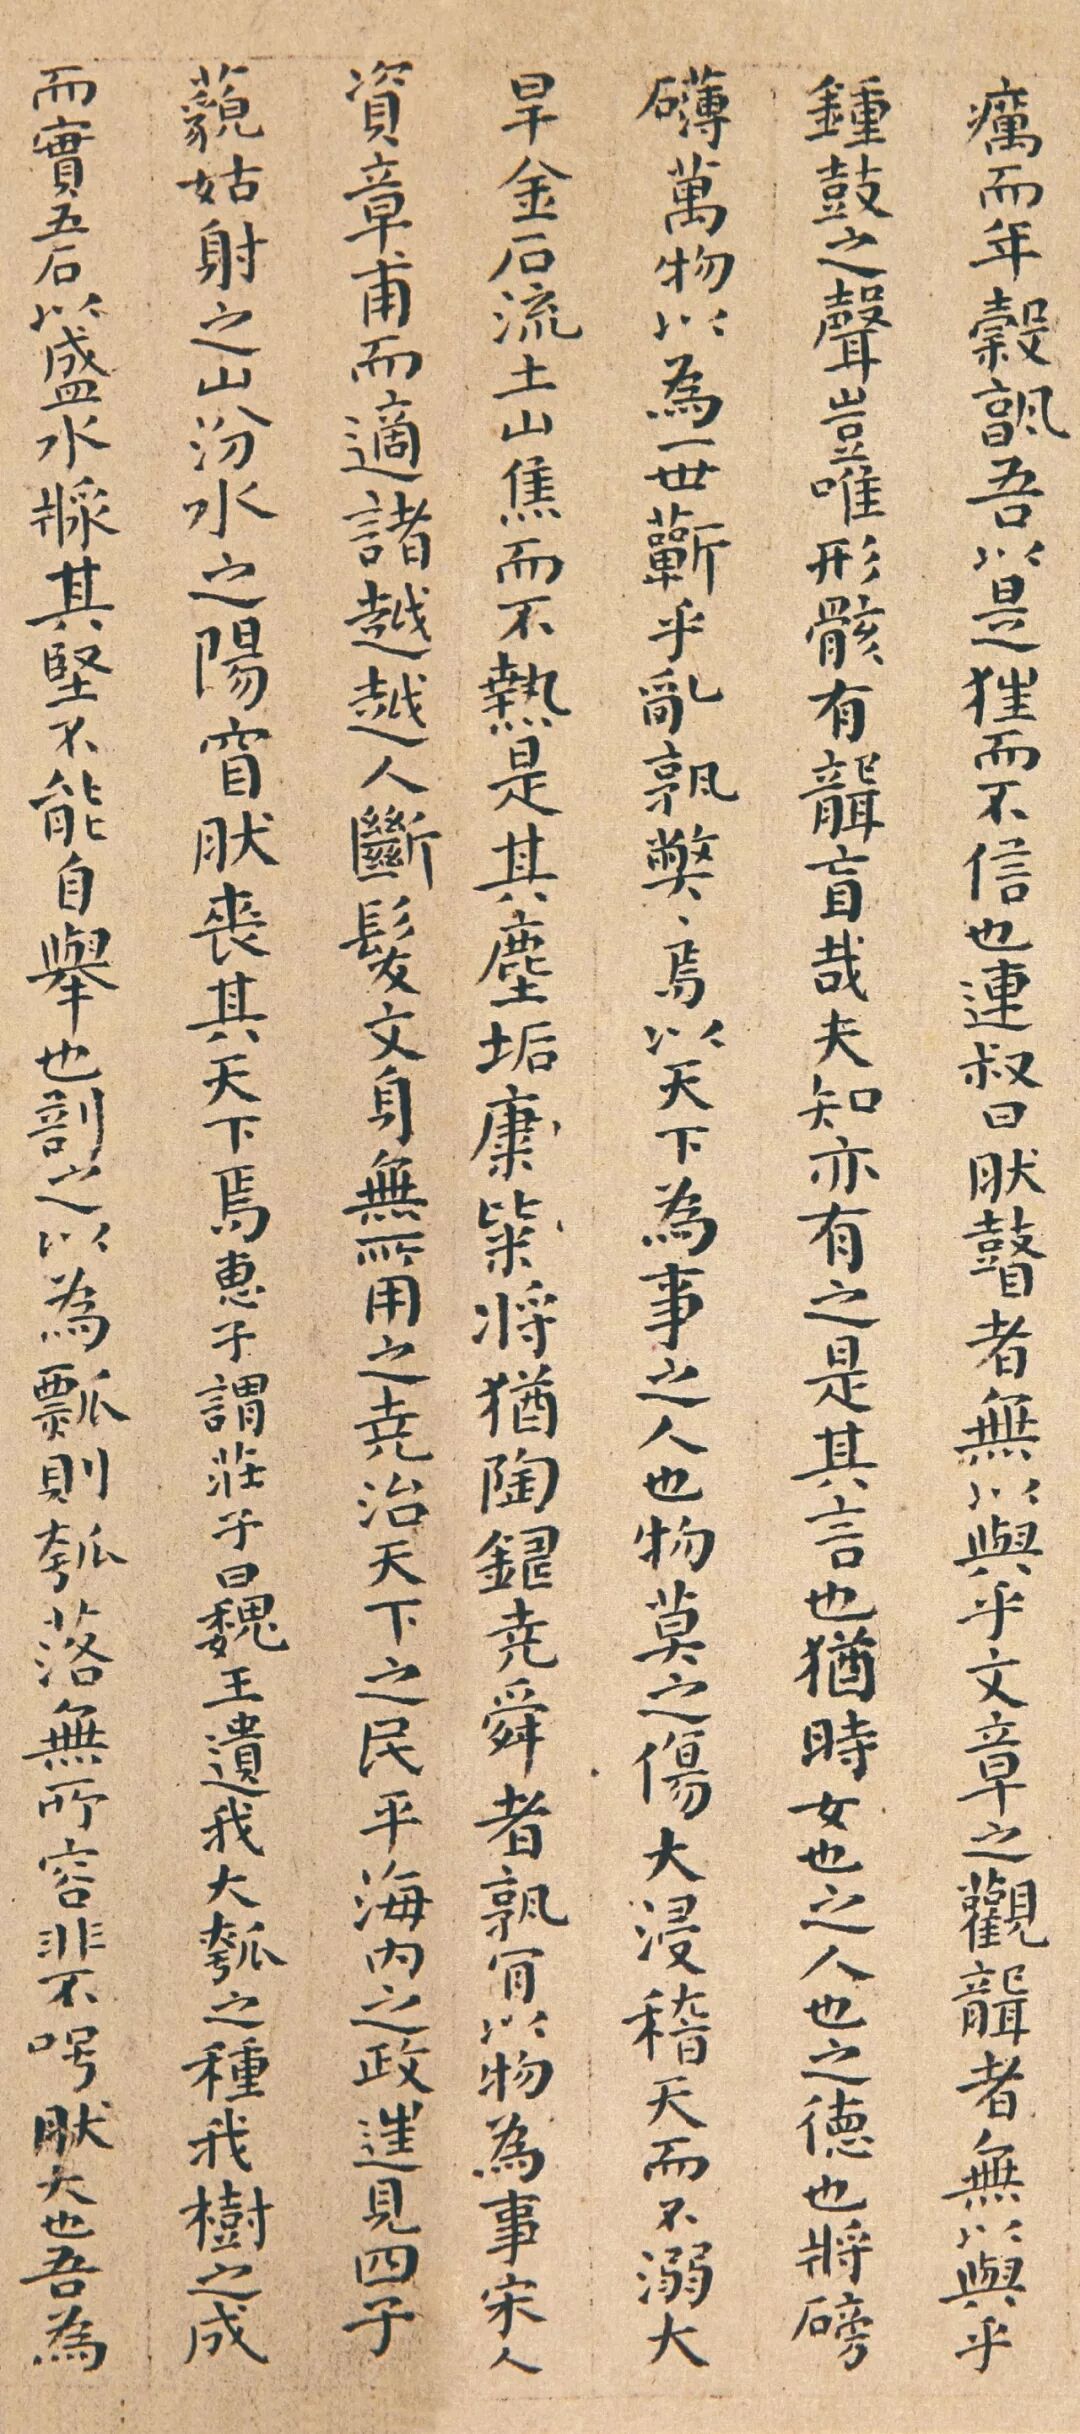 癘而年穀孰吾以是狂而不信也連叔曰然瞽者無以與乎文章之觀聾者無以與乎
鍾鼓之聲豈唯形骸有聾盲哉夫知亦有之是其言也猶時女也之人也之德也將磅
礴萬物以為一世蘄乎亂孰弊弊焉以天下為事之人也物莫之傷大浸稽天而不溺大
旱金石流土山焦而不熱是其塵垢糠粃將猶陶鑄堯舜者孰肎以物為事宋人
資章甫而適諸越越人斷髮文身無所用之堯治天下之民平海內之政進見四子
藐姑射之山汾水之陽窅然喪其天下焉惠子謂莊子曰魏王遺我大瓠之種我樹之成
而實五石以盛水漿其堅不能自舉也剖之以為瓢則瓠落無所容非不呺然大也吾為